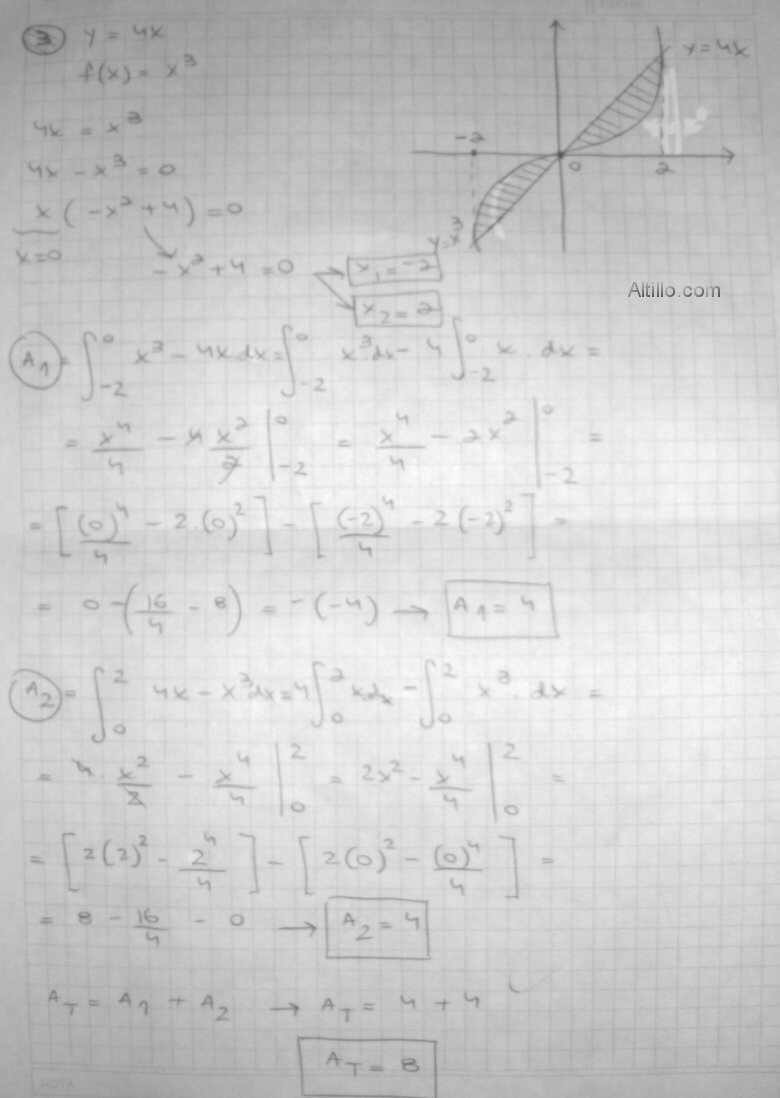 3 y = 4x
f(x) = x³
4x = x³
4x - x³ = 0
x ( -x² + 4 ) = 0
x = 0
- x² + 4 = 0
x₁ = -2
x₂ = 2
y = 4x
-2 0 2
y = x³
Altillo.com
A₁ = ∫₋₂⁰ x³ - 4x dx = ∫₋₂⁰ x³ dx - 4 ∫₋₂⁰ x . dx =
= x⁴/4 - 4 x²/2 |₋₂⁰ = x⁴/4 - 2x² |₋₂⁰ =
= [ (0)⁴/4 - 2.(0)² ] - [ (-2)⁴/4 - 2(-2)² ] =
= 0 - ( 16/4 - 8 ) = - (-4) → A₁ = 4
A₂ = ∫₀² 4x - x³ dx = 4 ∫₀² x dx - ∫₀² x³ . dx =
= 4 . x²/2 - x⁴/4 |₀² = 2x² - x⁴/4 |₀² =
= [ 2(2)² - 2⁴/4 ] - [ 2(0)² - (0)⁴/4 ] =
= 8 - 16/4 - 0 → A₂ = 4
A_T = A₁ + A₂ → A_T = 4 + 4
A_T = 8
NOTA